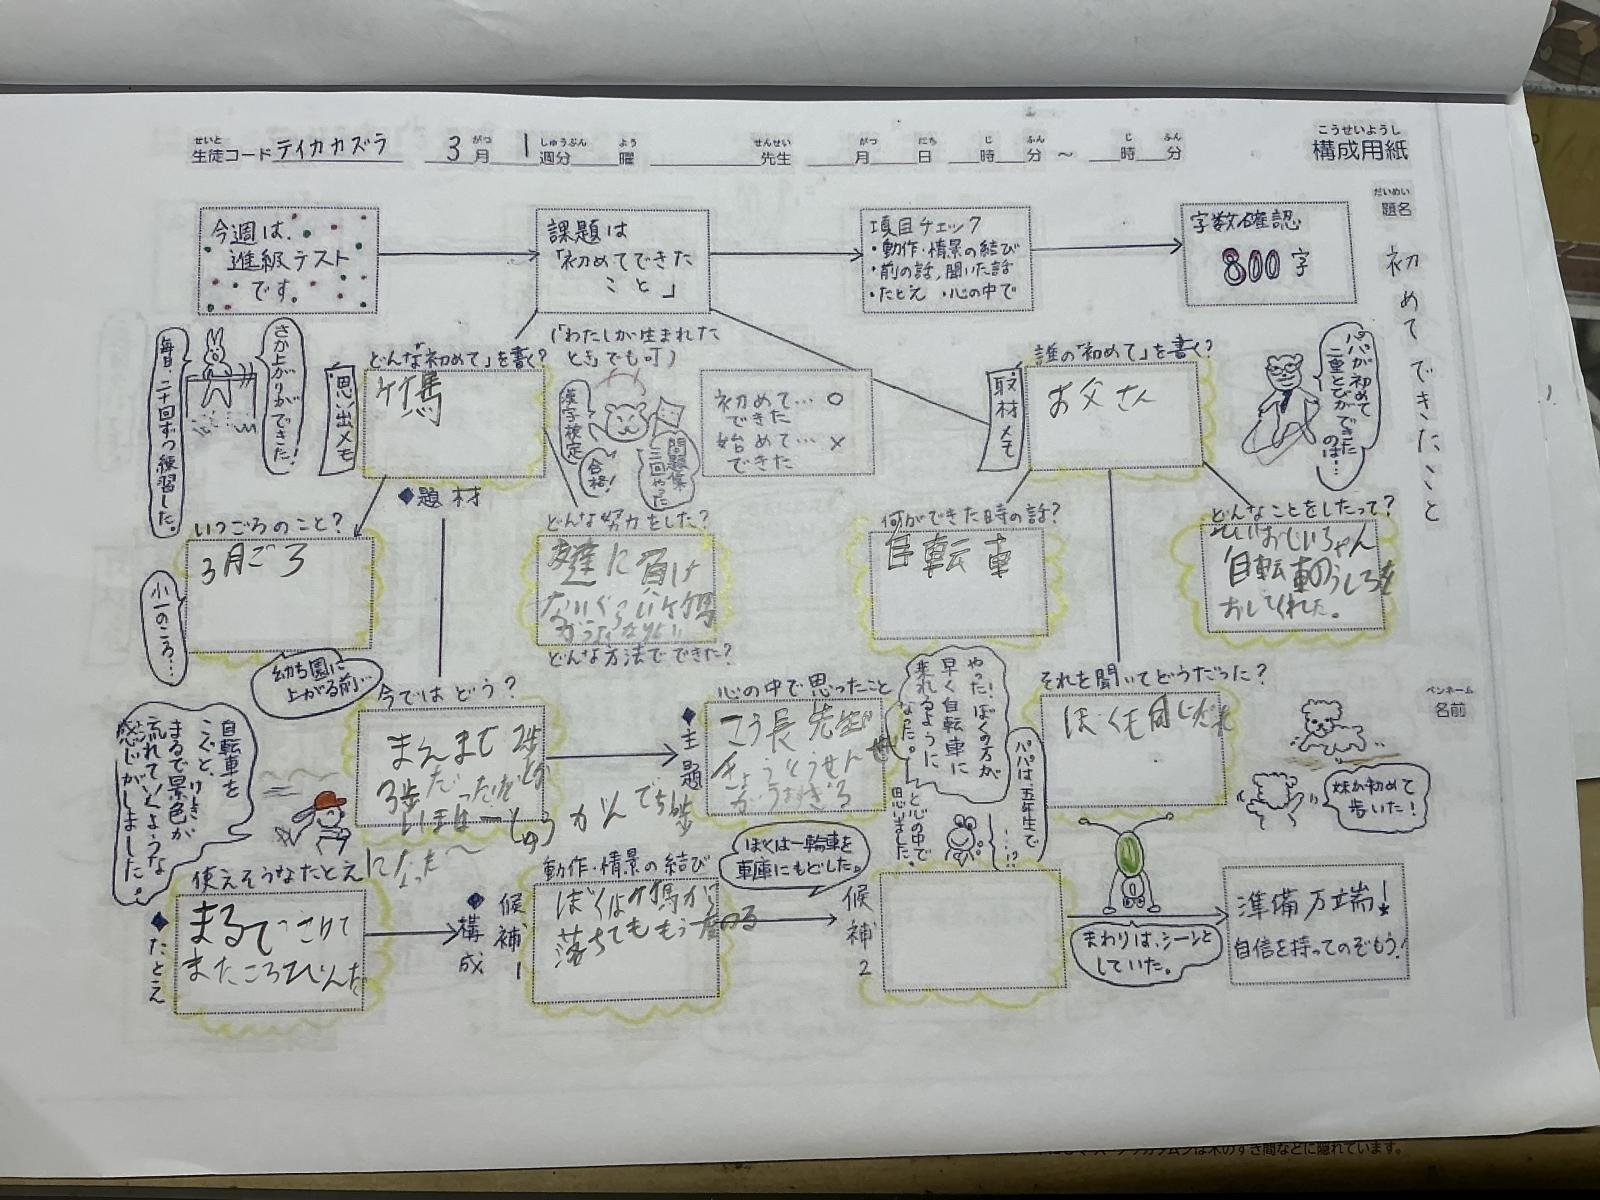 せいと
生徒コード テイカカズラ
がつ
3月
しゅうぶん
1週分
よう
曜
せんせい
先生
がつ にち じ ふん じ ふん
月 日 時 分 ～ 時 分
こうせいようし
構成用紙
だいめい
題名
初めてできたこと
今週は、
進級テスト
です。
課題は
「初めてできた
こと」
項目チェック
・動作・情景の結び
・前の話、聞いた話
・たとえ ・心の中で
字数確認
800字
(「わたしが生まれた
とき」でも可)
毎日、二十回ずつ練習した。
さか上がりができた！
思い出メモ
どんな「初めて」を書く？
竹馬
◆題材
漢字検定
合格！
問題集
三回やった
初めて…○
できた
始めて…×
できた
取材メモ
誰の「初めて」を書く？
お父さん
パパが初めて
二重とびができた
のは…
いつごろのこと？
3月ごろ
小一のころ…
幼ち園に
上がる前…
どんな努力をした？
友達に負け
ないぐらい竹馬
どんな方法でできた？
何ができた時の話？
自転車
どんなことをしたって？
ひいおじいちゃん
自転車のうしろを
おしてくれた。
今ではどう？
まえまで2歩
3歩だったけど
いまは
になった～
◆主題
心の中で思ったこと
こう長先生
やった！ぼくの方が
早く自転車に
乗れるように
なった。
と心の中で
思いました。
パパは五年生で
……!?
それを聞いてどうだった？
ぼくも同じだ
ペンネーム
名前
妹が初めて
歩いた！
自転車を
こぐと、けしき
まるで景色が
流れていくような
感じがしました。
使えそうなたとえ
◆たとえ
まるで
◆構成
候補1
動作・情景の結び
ぼくは竹馬から
落ちてももう一度のる
ぼくは一輪車を
車庫にもどした。
候補2
まわりは、シーンと
していた。
準備万端！
自信を持ってのぞもう！